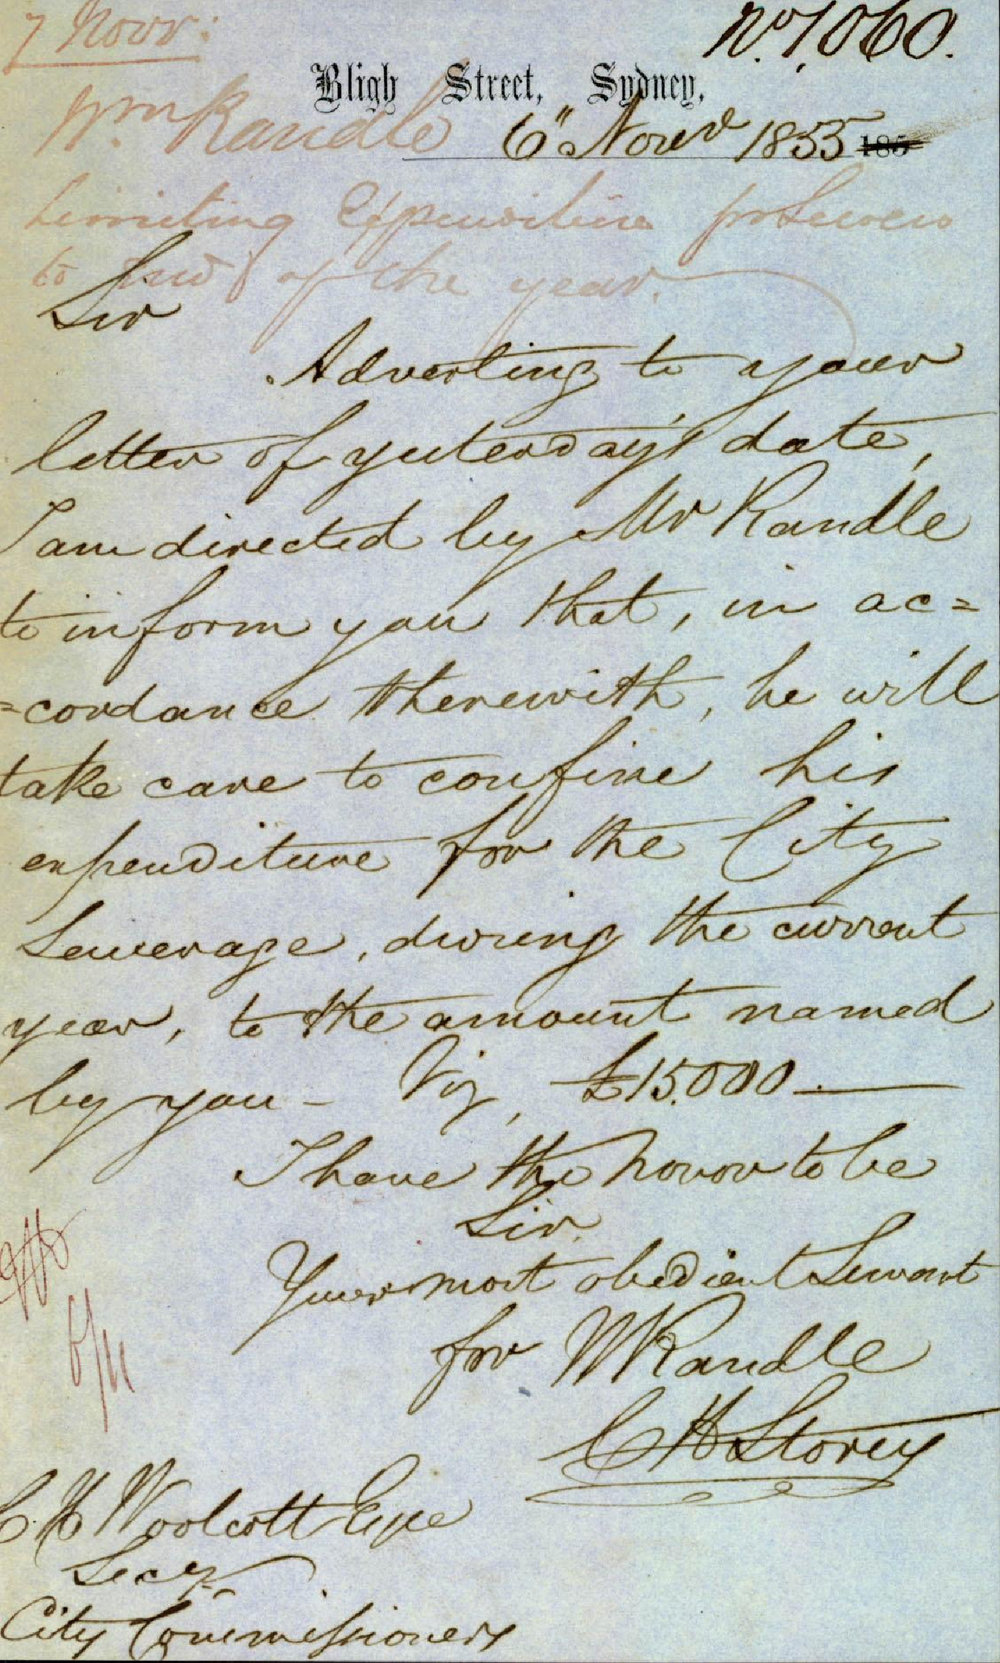 7 Novr:
No. 1,060.
Bligh Street, Sydney,
Wm Randle
6" Novr 1855 185
Limiting Expenditure for Sewers
to end of the year.
Sir
Adverting to your
letter of yesterday's date,
I am directed by Mr Randle
to inform you that, in ac=
=cordance therewith, he will
take care to confine his
expenditure for the City
Sewerage, during the current
year, to the amount named
by you – Viz, £15.000 —
I have the honor to be
Sir
Your most obedient Servant
for W Randle
C H Storey
6/11
C. H. Woolcott Esqre
Secy
City Commissioners